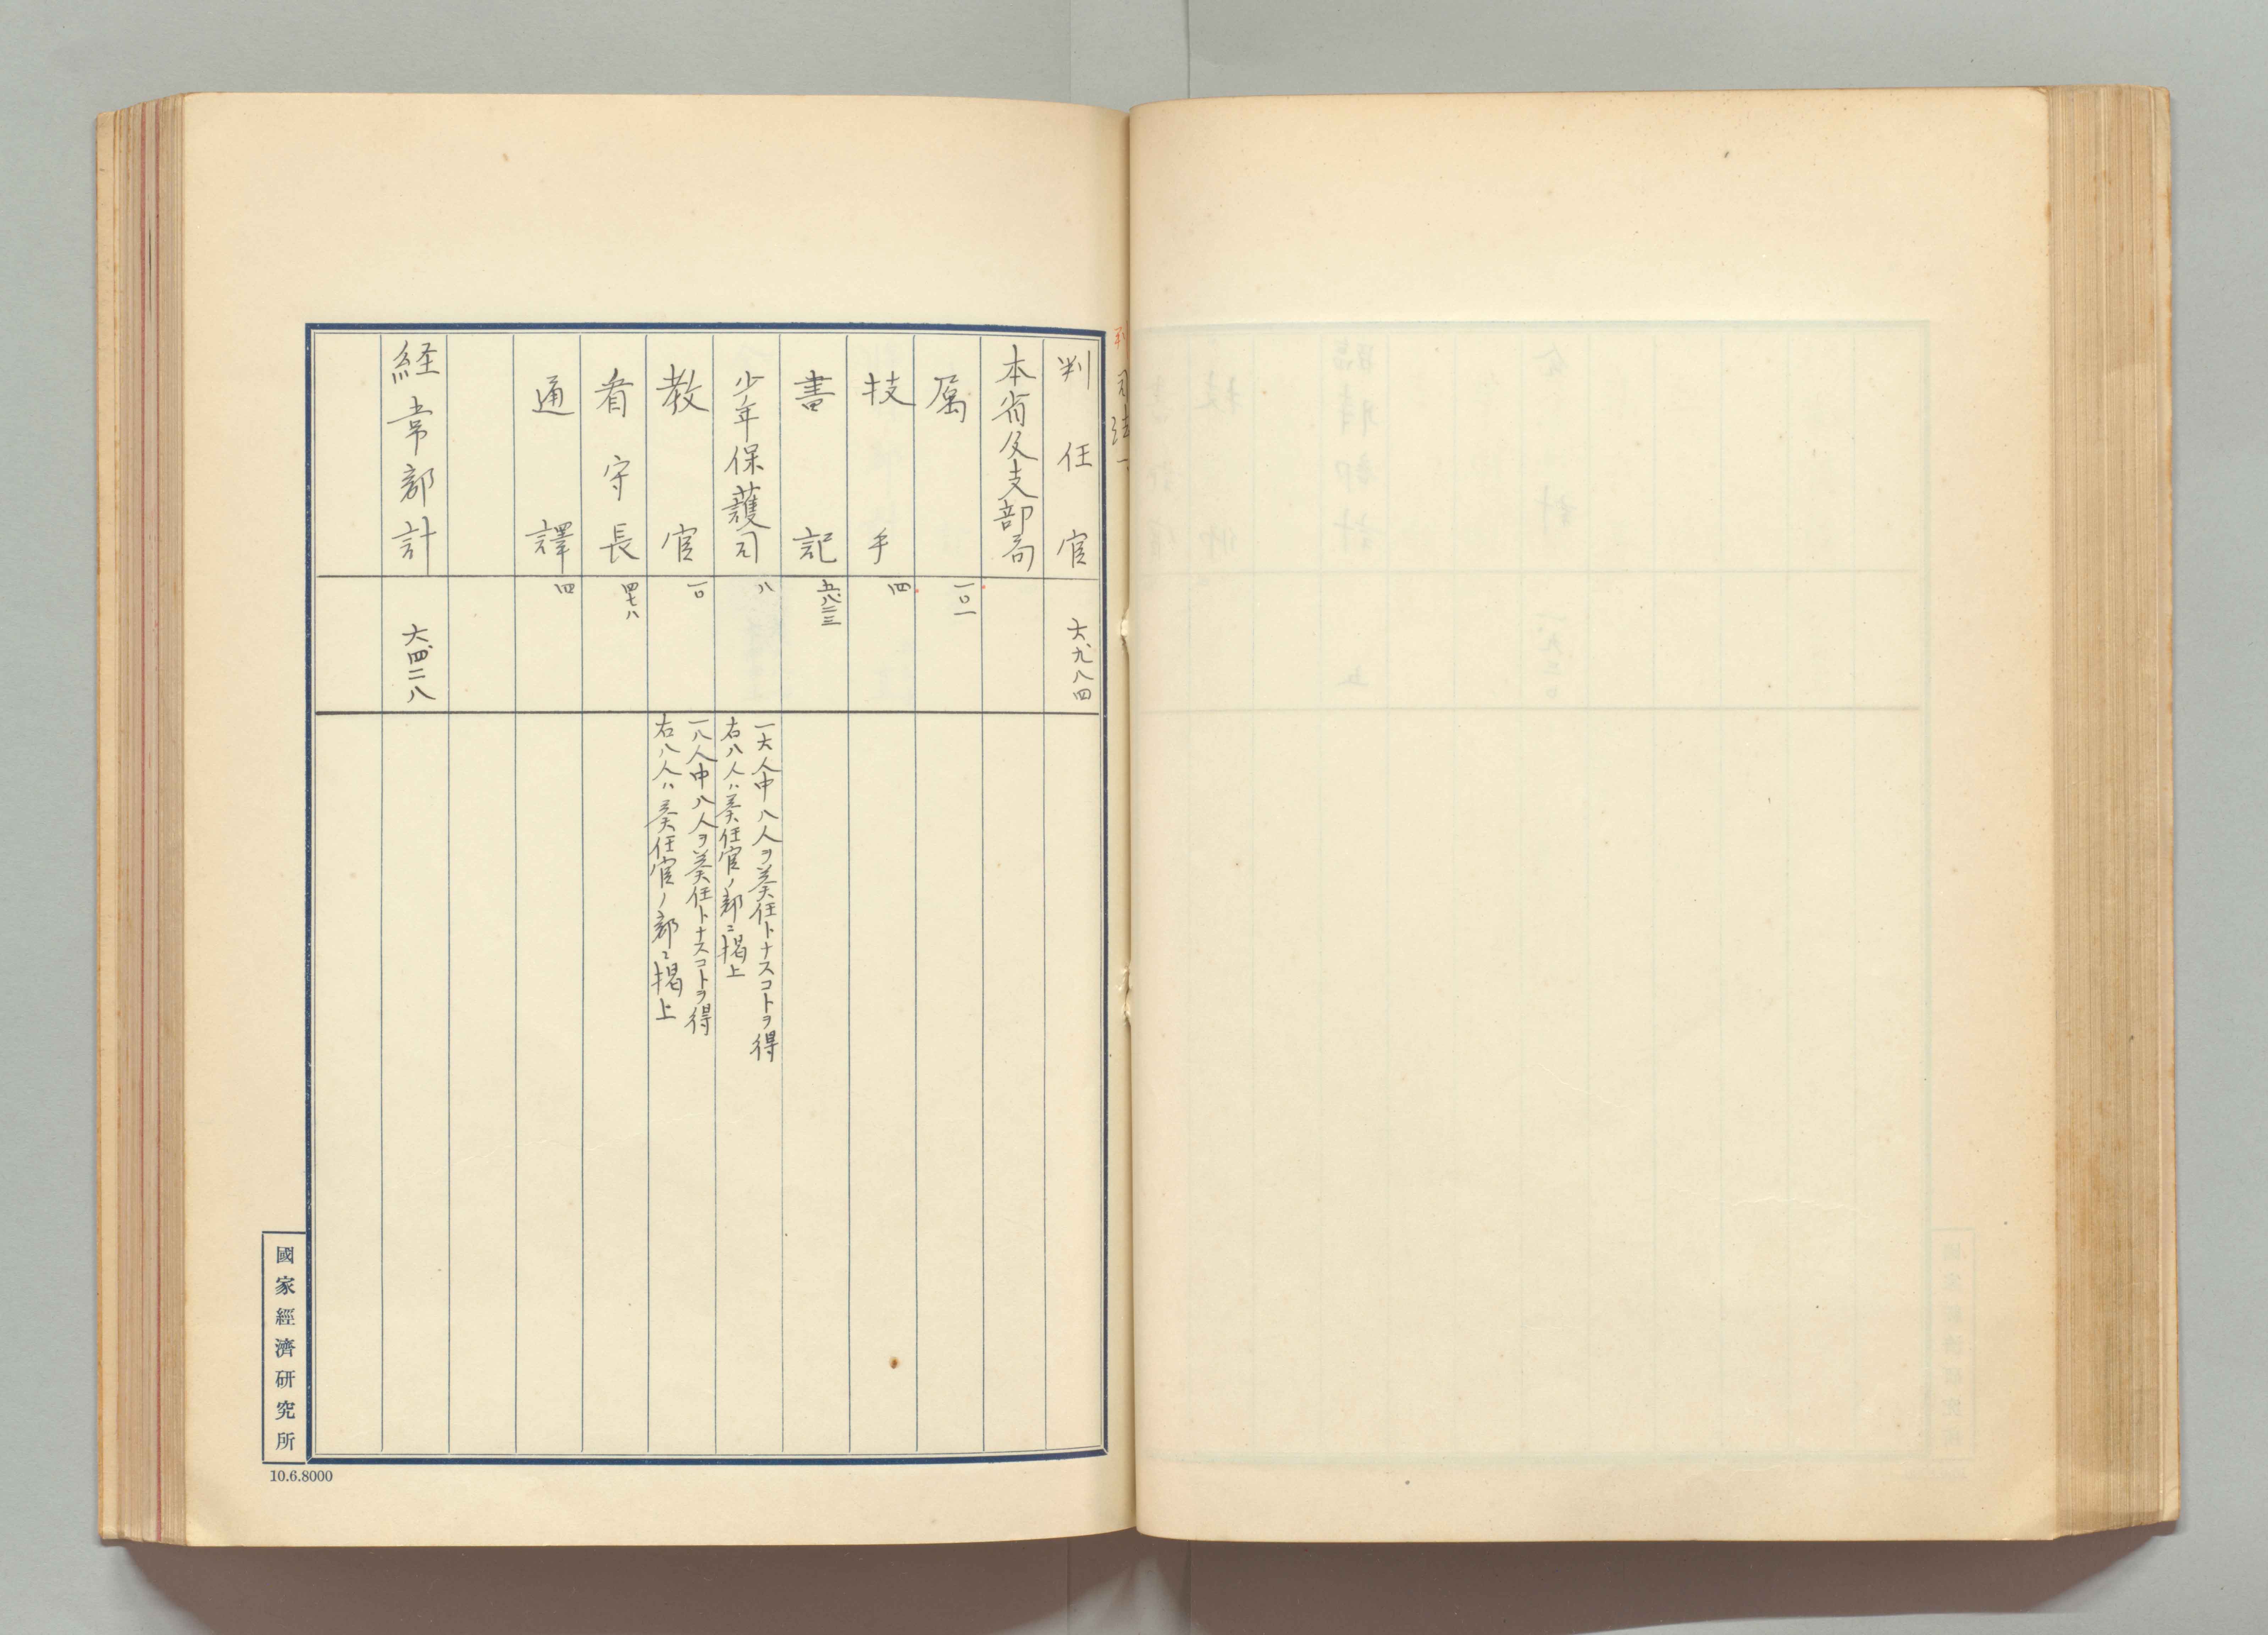 司法 一
判任官 六、九八四
本省及支部局
属 一〇一
技手 四
書記 五、八二三
少年保護司 八
一六人中八人ヲ奏任トナスコトヲ得
右八人ハ奏任官ノ部ニ掲上
教官 一〇
一八人中八人ヲ奏任トナスコトヲ得
右八人ハ奏任官ノ部ニ掲上
看守長 四七八
通譯 四
経常部計 六、四二八
國家經濟研究所
10.6.8000